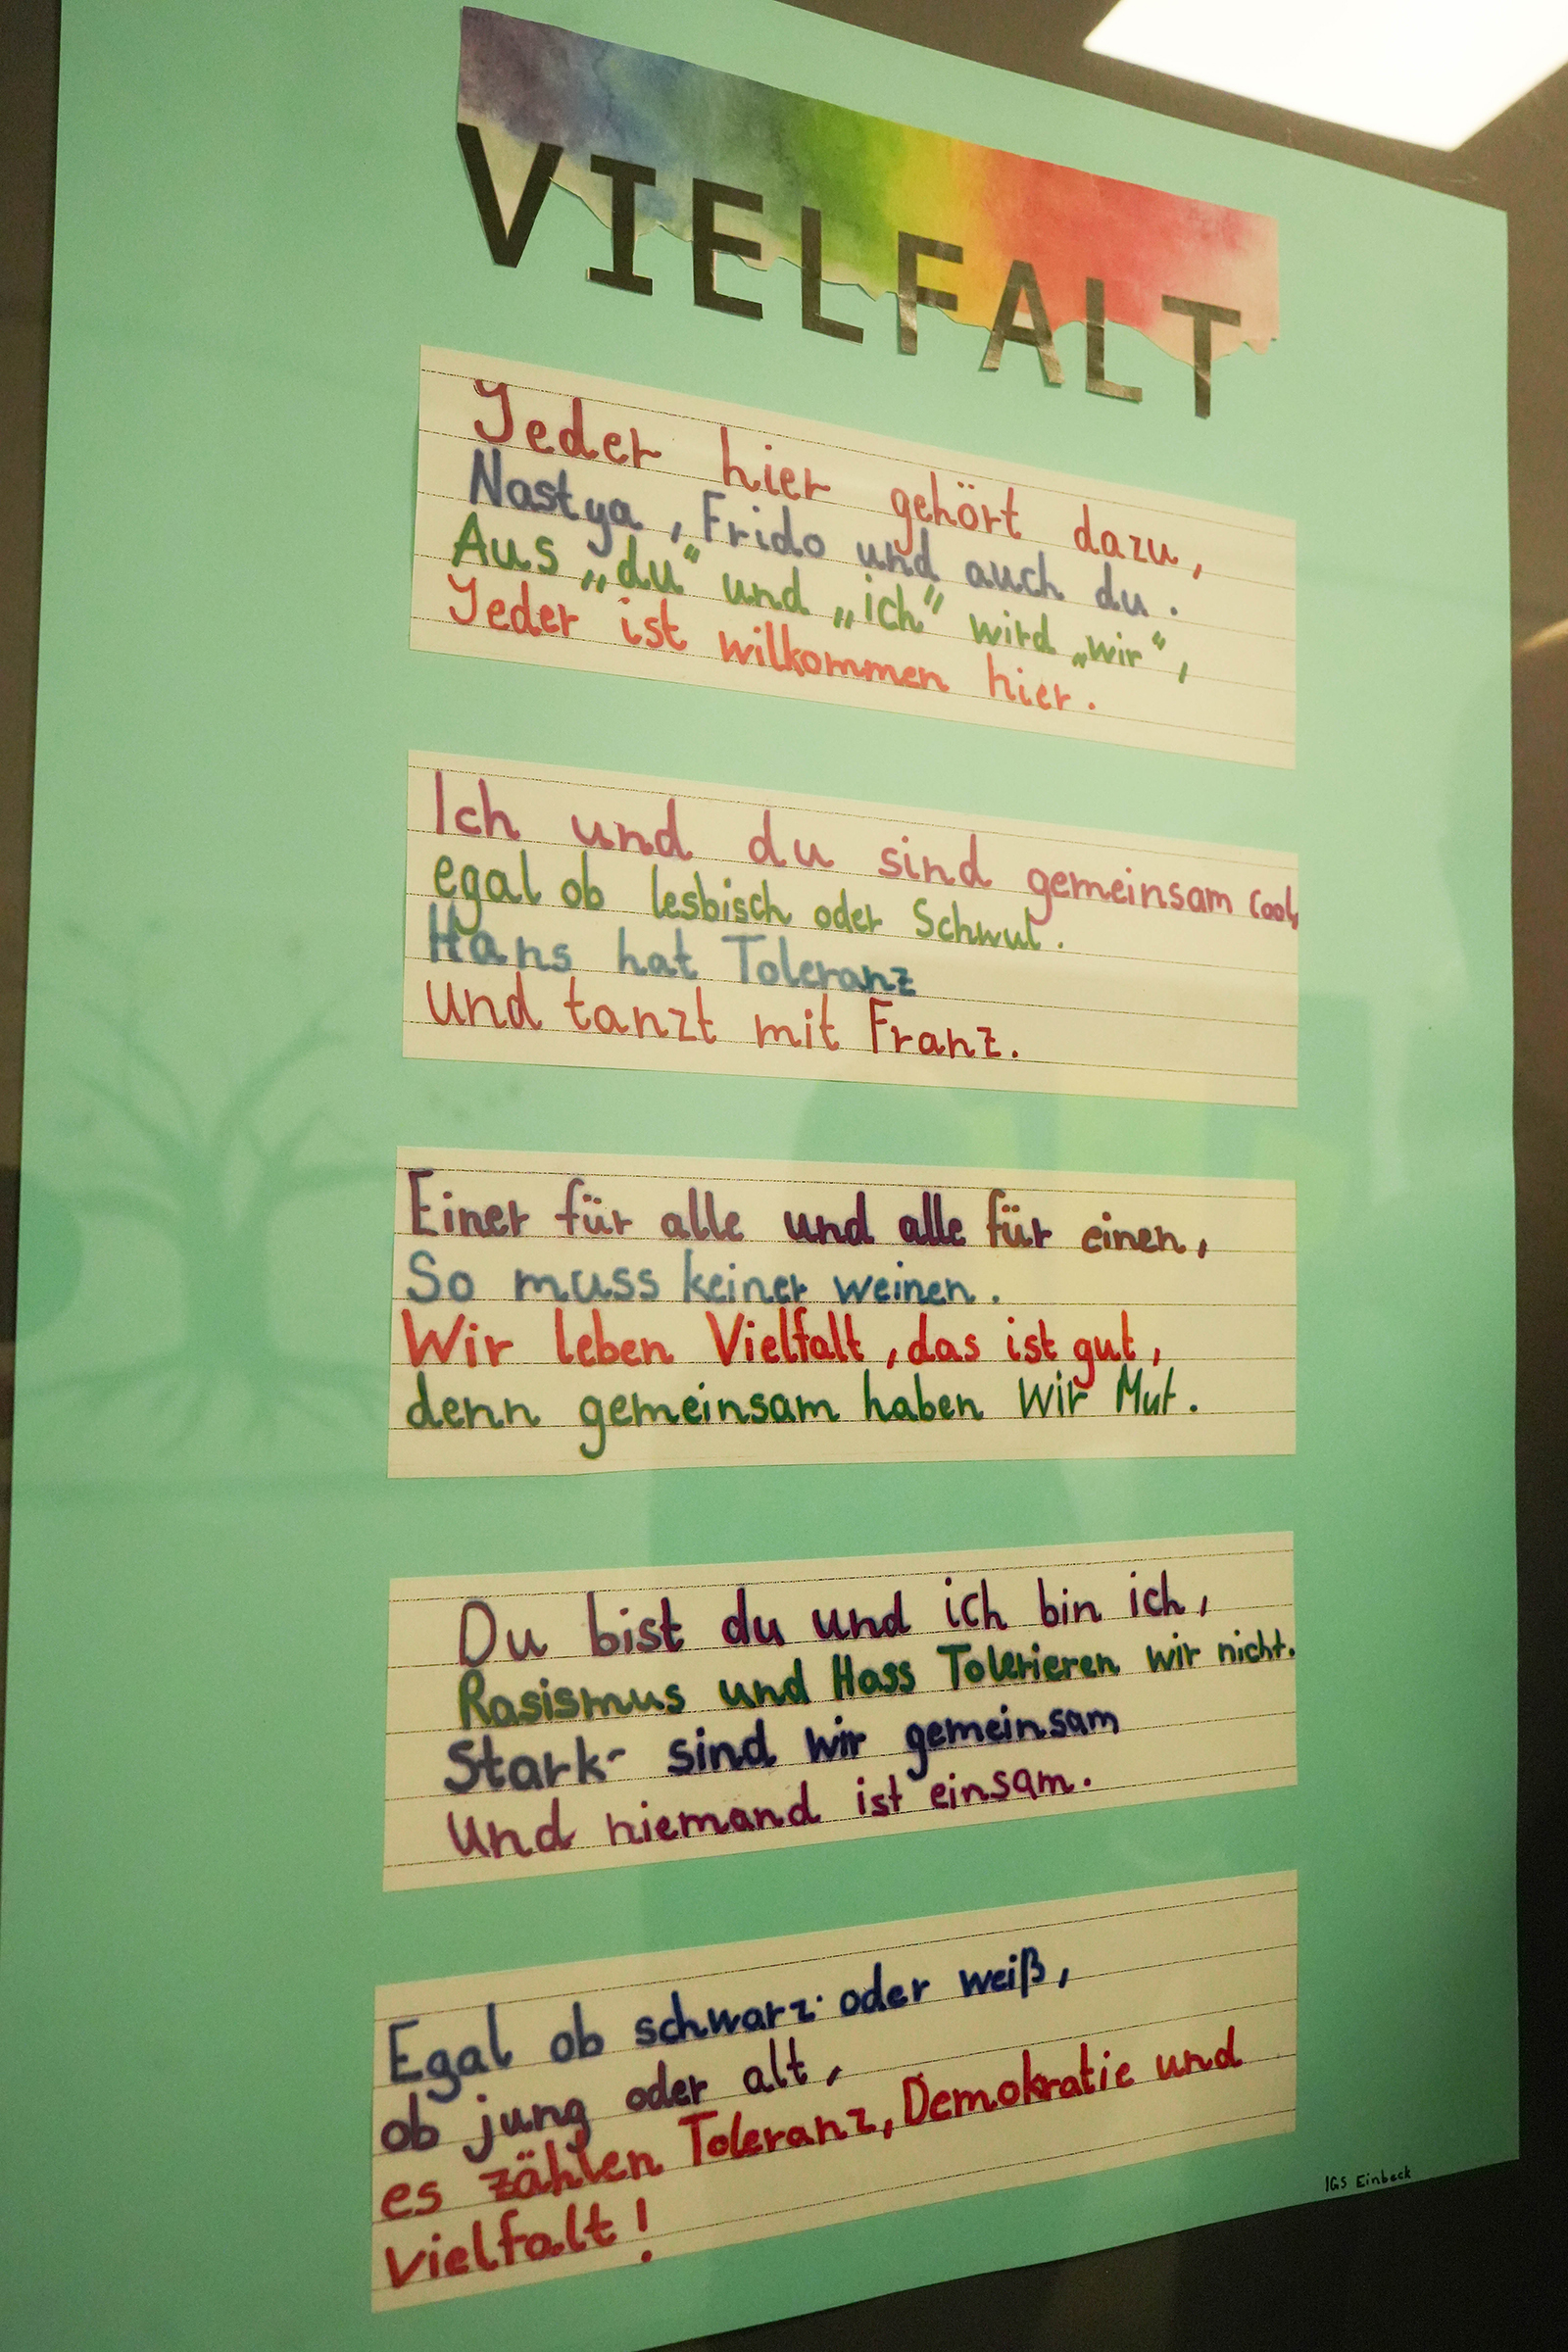 VIELFALT
Jeder hier gehört dazu,
Nastya, Frido und auch du.
Aus „du“ und „ich“ wird „wir“,
Jeder ist wilkommen hier.
Ich und du sind gemeinsam cool,
egal ob lesbisch oder Schwul.
Hans hat Toleranz
und tanzt mit Franz.
Einer für alle und alle für einen,
So muss keiner weinen.
Wir leben Vielfalt, das ist gut,
denn gemeinsam haben Wir Mut.
Du bist du und ich bin ich,
Rasismus und Hass Tolerieren wir nicht.
Stark sind wir gemeinsam
Und niemand ist einsam.
Egal ob schwarz oder weiß,
ob jung oder alt,
es zählen Toleranz, Demokratie und
vielfalt!
IGS Einbeck